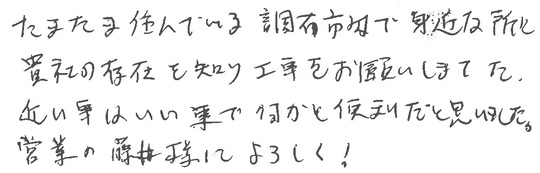 たまたま住んでいる調布市内で身近な所に
貴社の存在を知り工事をお願いしました.
近い事はいい事で何かと便利だと思いました。
営業の藤井様によろしく!